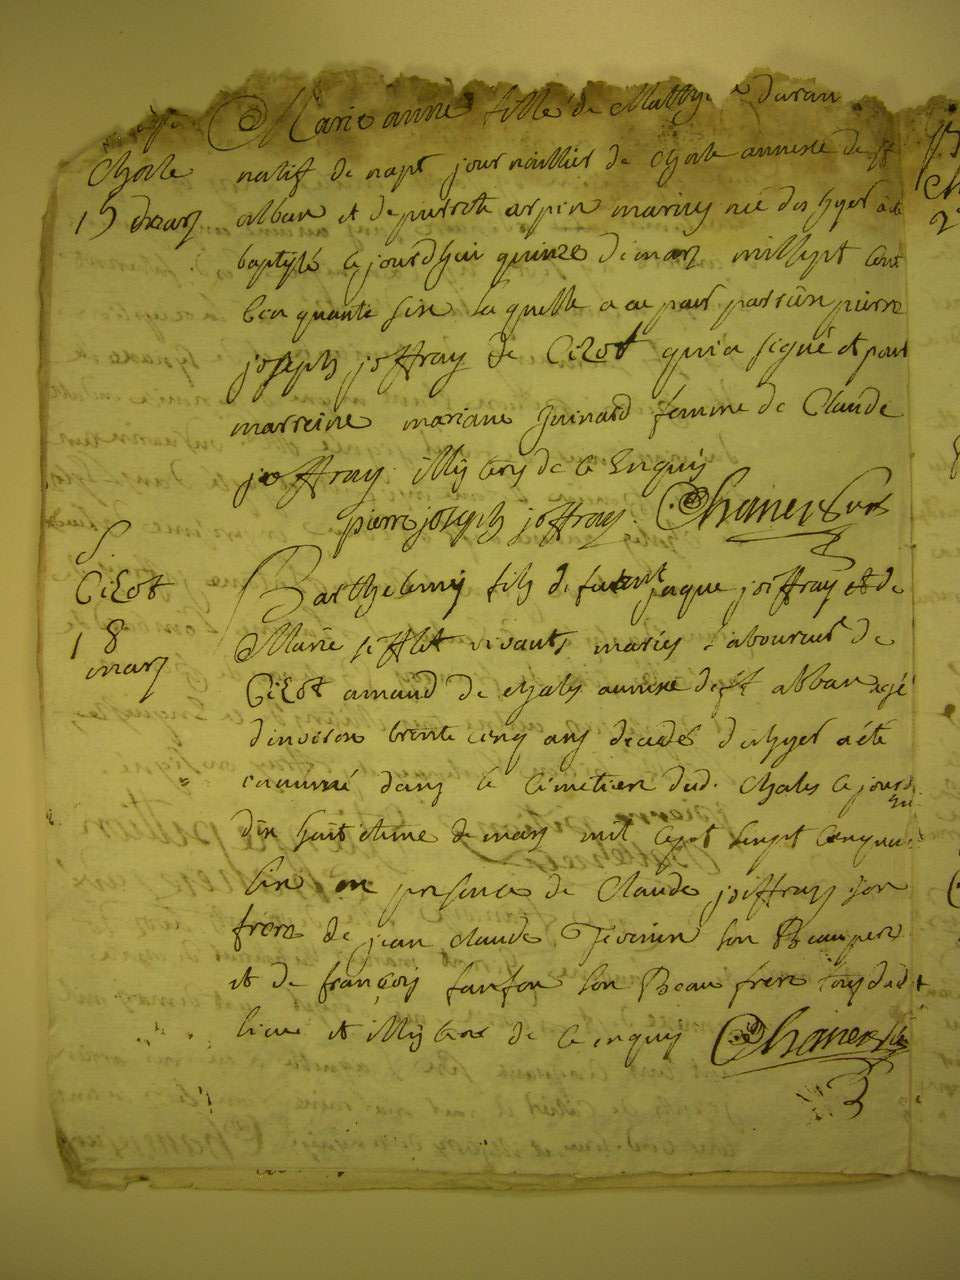 Marie anne fille de Matthye duran
Chasle
natif de napt journaillier de Chasle annexe de st
15 mars
alban et de perrette arpin mariés née d'hyer a été
baptisée ce jourd'huy quinze de mars mil sept cent
cinquante six laquelle a eu pour parrain pierre
joseph joffray de Cizot qui a signé et pour
marreine mariane guinard femme de Claude
joffray illiterés de ce enquis
pierre joseph joffray.
S.
Cizot
18
mars
Barthelemy fils de futent jaque joiffray et de
Marie sifflet vivants mariés laboureur de
Cizot amand de chales annexe de st alban agé
d'environ trente cinq ans decedé d'ahyer a été
inhumé dans le cimetiere dud. Chales ce jourd
huy
dix huitieme de mars mil sept cinqua
six en presence de Claude joiffray son
frere de jean claude Tevenin son Beau pere
et de françois fanfon son Beau frere tous dud
lieu et illiteres de ce enquis